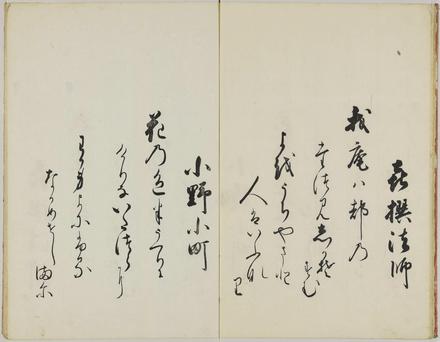 喜撰法師
我庵ハ都乃
たつみしかそ
すむ
よをうちやまと
人はいふな
り
小野小町
花乃色はうつりに
けりないたつらに
わか身よにふる
なかめせし
まに